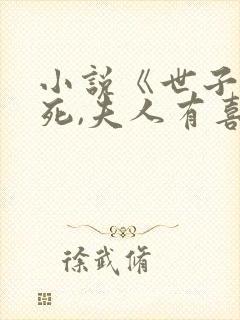 小说《世子
死,夫人有喜
徐武脩